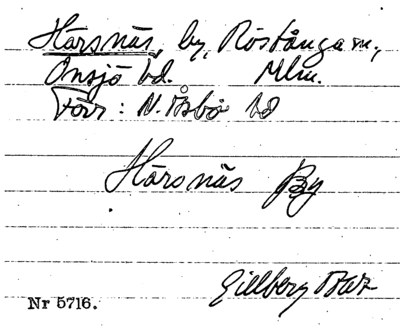 Härsnäs, by, Röstånga sn,
Onsjö hd. Mlm.
Förr: N. Åsbo hd
Härsnäs By
Gillberg
Nr 5716.